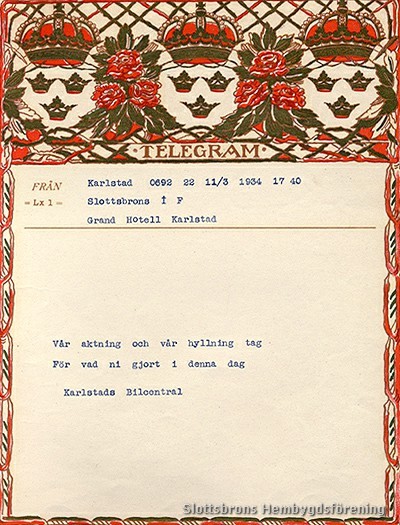 TELEGRAM
FRÅN Karlstad 0692 22 11/3 1934 17 40
= Lx 1 = Slottsbrons I F
Grand Hotell Karlstad
Vår aktning och vår hyllning tag
För vad ni gjort i denna dag
Karlstads Bilcentral
Slottsbrons Hembygdsförening